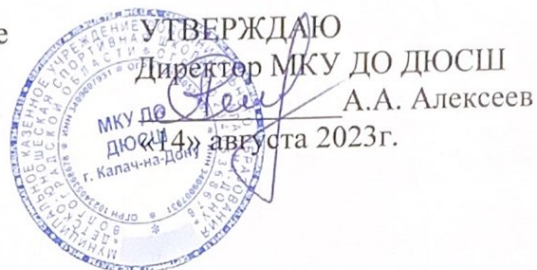 е
УТВЕРЖДАЮ
Директор МКУ ДО ДЮСШ
А.А. Алексеев
«14» августа 2023г.
МКУ ДО
ДЮСШ
г. Калач-на-Дону